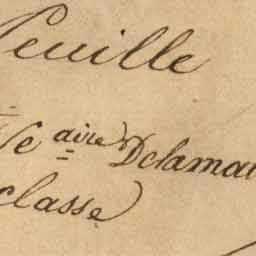 feuille
aire Delamar
classe